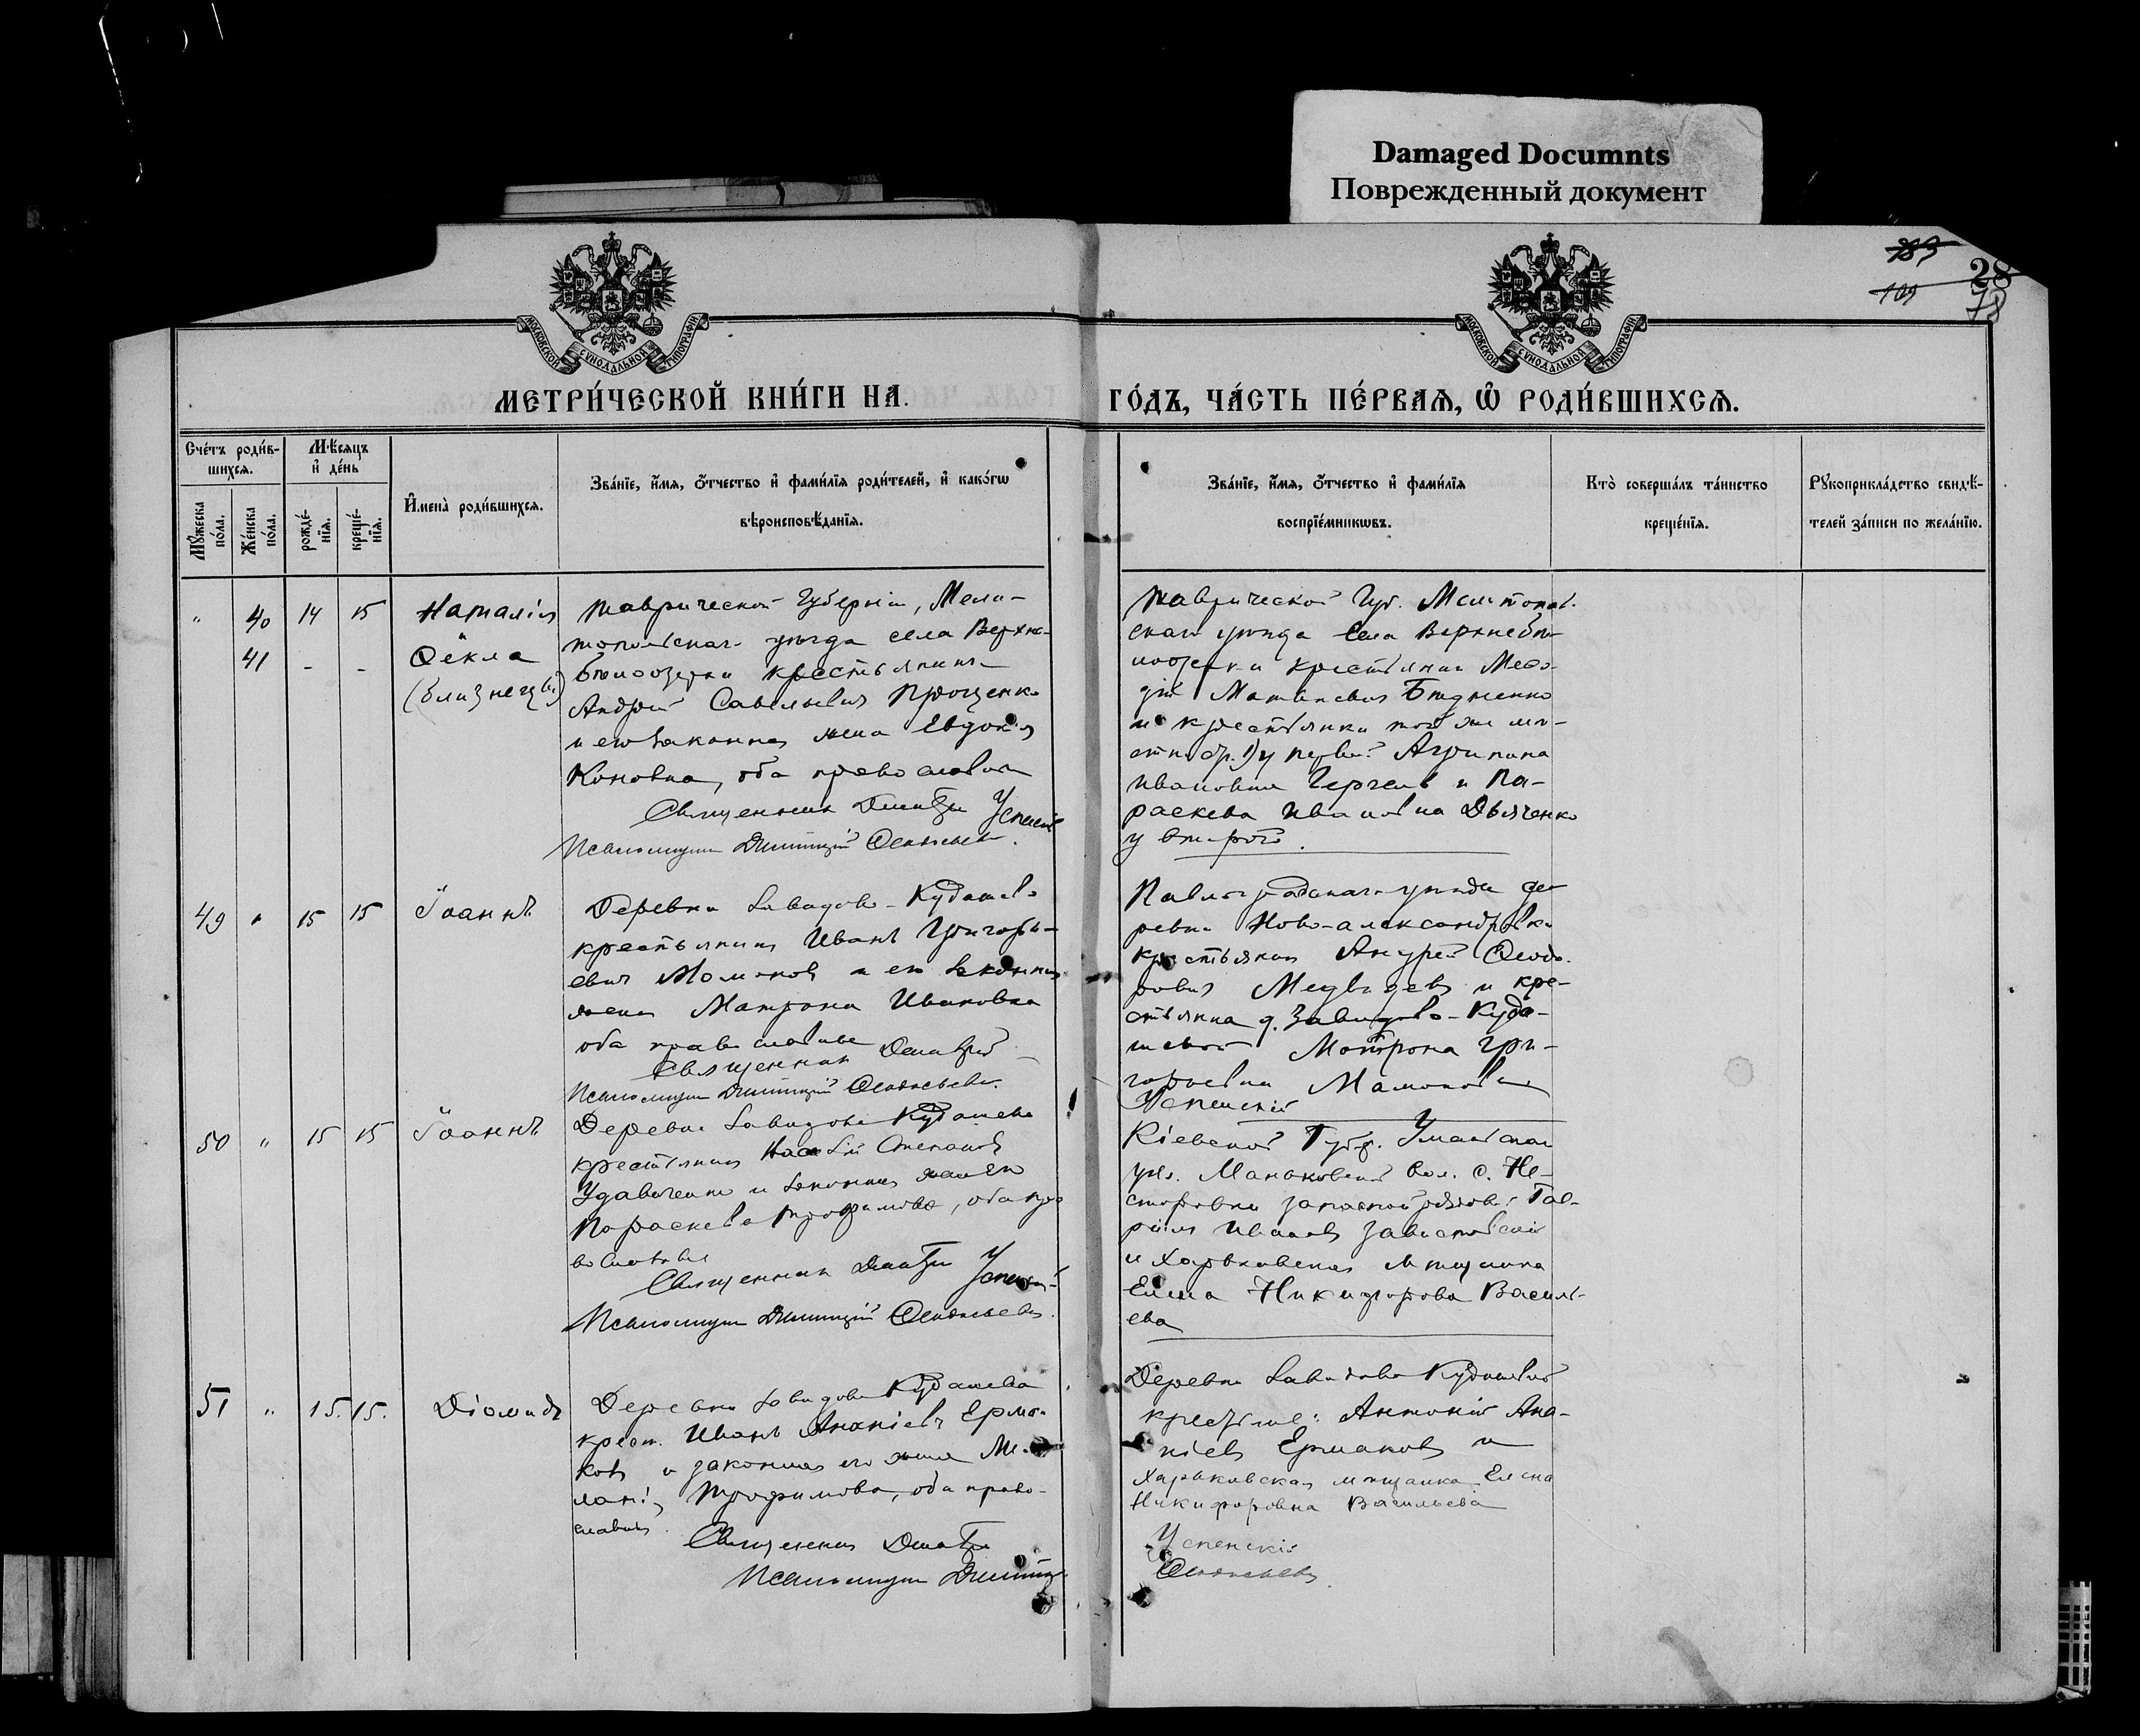 Damaged Documnts
Поврежденный документ
189
109
28
78
МОСКОВСКОЙ СѴНОДАЛЬНОЙ ТИПОГРАФІИ
МОСКОВСКОЙ СѴНОДАЛЬНОЙ ТИПОГРАФІИ
МЕТРИ́ЧЕСКОЙ КНИ́ГИ НА
ГО́ДЪ, ЧА́СТЬ ПЕ́РВАЯ, Ѡ РОДИ́ВШИХСЯ.
Сче́тъ роди́в-
шихся.
Мѣ́сяцъ
и҆ де́нь
Мꙋ́жеска по́ла.
Же́нска по́ла.
рожде́-
нїя.
креще́-
нїя.
И҆мена̀ роди́вшихся.
Зва́нїе, и҆́мя, ѻ҆́тчество и҆ фами́лїя роди́телей, и҆ како́гѡ
вѣроисповѣ́данїя.
Зва́нїе, и҆́мя, ѻ҆́тчество и҆ фами́лїя
воспрїе́мникѡвъ.
Кто̀ соверша́лъ та́инство
креще́нїя.
Рꙋкоприкла́дство свидѣ́-
телей за́писи по жела́нїю.
" 40 14 15 Наталія
41 - - Ѳекла
(близнецы)
Таврической Губерніи, Мели-
топольскаго уѣзда села Верхне-
бѣлозерки крестьянинъ
Андрей Савельевичъ Проценко
и его законная жена Евдокія
Коновна, оба православные
Священникъ Димитрій Успенскій
Псаломщикъ Димитрій
Таврической Губ. Мелитополь-
скаго уѣзда села Верхнебѣ-
лозерки крестьянинъ Меѳо-
дій Матвѣевичъ
и крестьянка той же мѣ-
стности у первой Агрипина
Ивановна и Па-
раскева Ивановна Дьяченко
у второй.
49 " 15 15 Іоаннъ
Деревни Завидово-Кудашево
крестьянинъ Иванъ Григорь-
евичъ Момоновъ и его законная
жена Матрона Ивановна
оба православные
Священникъ Димитрій
Псаломщикъ Димитрій
Павлоградскаго уѣзда де-
ревни Ново-александровки
крестьянинъ Андрей Ѳеодо-
ровичъ Медвѣдевъ и кре-
стьянка д. Завидово-Куда-
шевой Матрона Гри-
горьевна Мамонова
Успенскій
50 " 15 15 Іоаннъ
Деревни Завидово Кудашево
крестьянинъ Степановъ
и законная жена его
Параскева Трофимова, оба пра-
вославные
Священникъ Димитрій Успенскій
Псаломщикъ Димитрій
Кіевской Губ. Уманскаго
уѣз. Маньковской вол. с. Не-
стеровки запасной рядовой Гав-
ріилъ Ивановъ
и Харьковская мѣщанка
Елена Никифорова Василь-
ева
51 " 15. 15. Діомидъ
Деревни Завидово Кудашево
крест. Иванъ Ананіевъ Ерма-
ковъ и законная его жена Ме-
ланія Трофимова, оба право-
славные.
Священникъ Димитрій
Псаломщикъ Димитрій
Деревни Завидово Кудашевой
крестьяне: Антоній Ана-
ніевъ Ермаковъ и
Харьковская мѣщанка Елена
Никифоровна Васильева
Успенскій